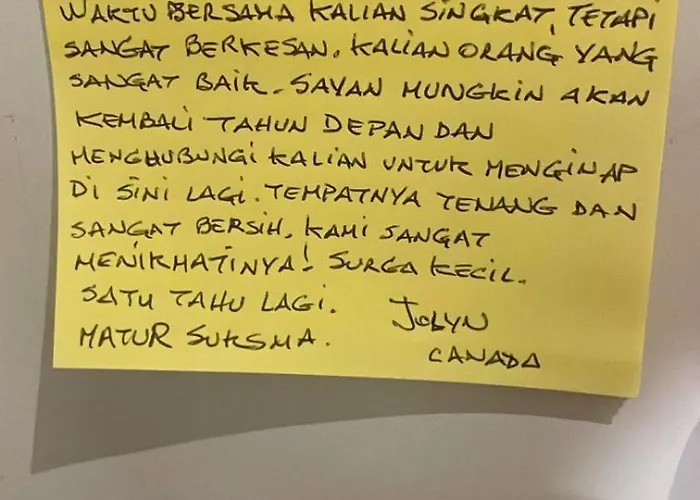 WAKTU BERSAMA KALIAN SINGKAT, TETAPI
SANGAT BERKESAN. KALIAN ORANG YANG
SANGAT BAIK. SAYAN MUNGKIN AKAN
KEMBALI TAHUN DEPAN DAN
MENGHUBUNGI KALIAN UNTUK MENGINAP
DI SINI LAGI. TEMPATNYA TENANG DAN
SANGAT BERSIH. KAMI SANGAT
MENIKMATINYA! SURGA KECIL.
SATU TAHU LAGI.
JOLYN
MATUR SUKSMA.
CANADA